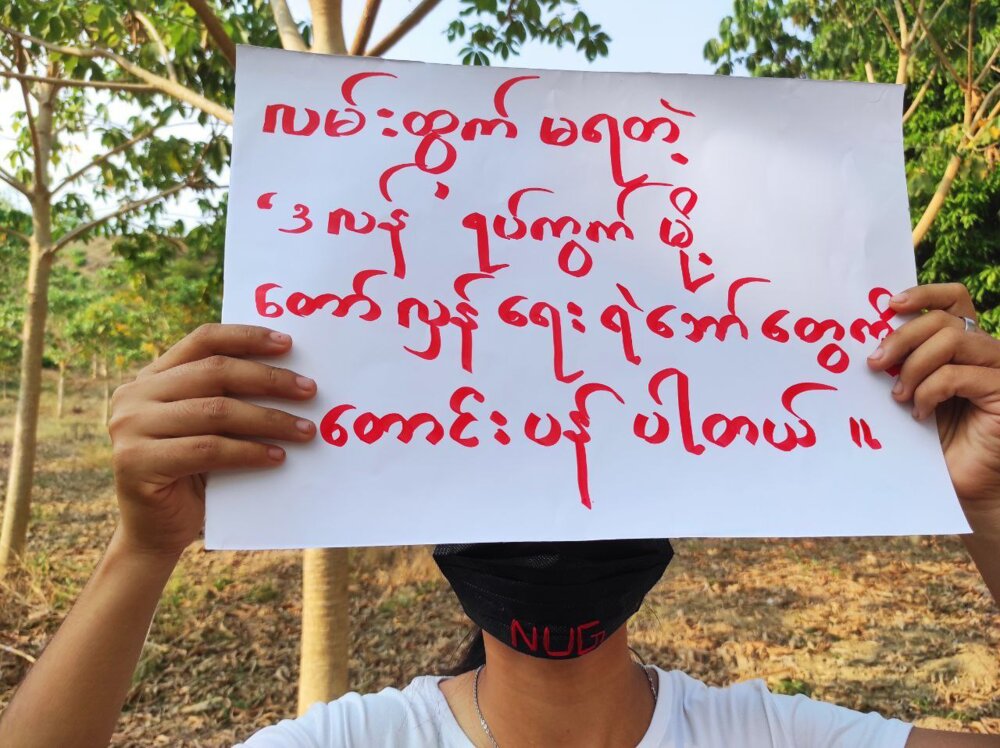 လမ်းထွက် မရတဲ့
‘ဒလန် ့ ရပ်ကွက် မို့
တော်လှန်ရေး ရဲဘော် တွေကို
တောင်းပန် ပါတယ် ။
NUG